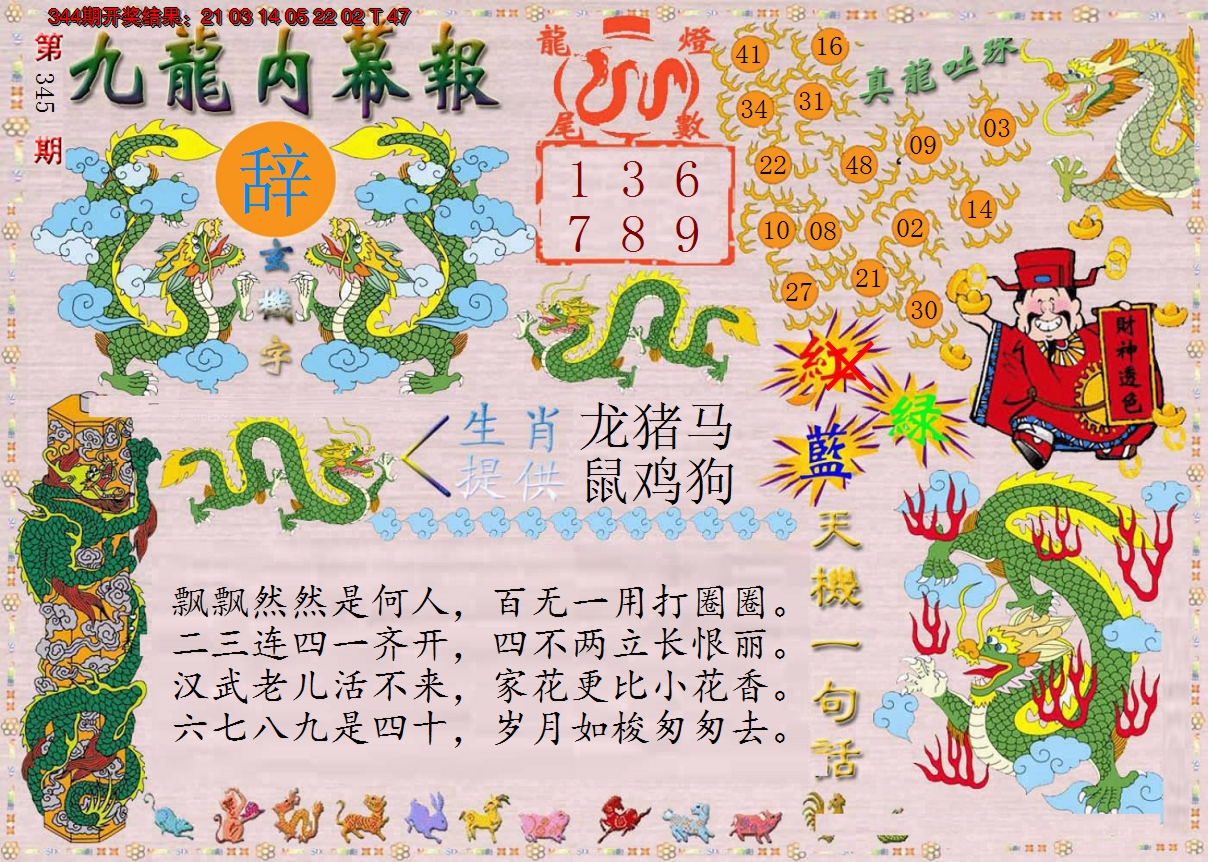 344期开奖结果：21 03 14 05 22 02 T 47
第345期
九龍内幕報
辞
玄機字
龍燈
尾數
1 3 6
7 8 9
真龍吐珠
41 16
34 31
22 48 09 03
10 08 02 14
27 21 30
紅
綠
藍
財神透色
生肖 龙猪马
提供 鼠鸡狗
飘飘然然是何人，百无一用打圈圈。
二三连四一齐开，四不两立长恨丽。
汉武老儿活不来，家花更比小花香。
六七八九是四十，岁月如梭匆匆去。
天機一句話